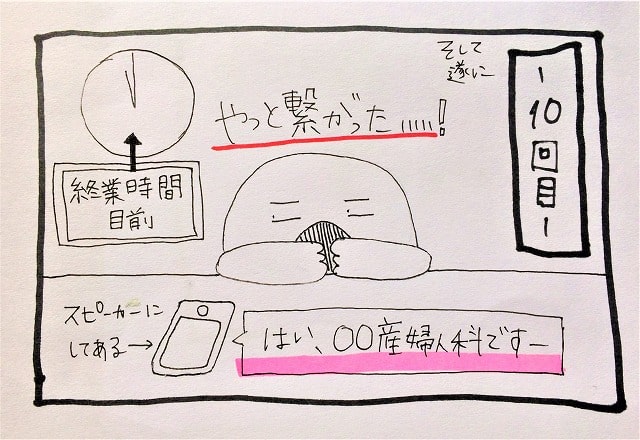 そして
遂に
ー10回目ー
やっと繋がった……!
終業時間
目前
スピーカーに
してある→
はい、〇〇産婦人科ですー